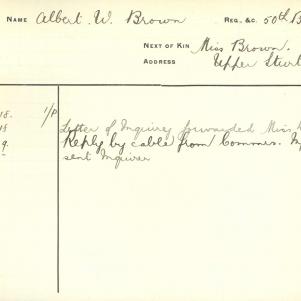 NAME Albert W. Brown REG. &C. 50th B
NEXT OF KIN Miss Brown.
ADDRESS Upper Sturt
18. 1/P
18 Letter of Inquiry forwarded Miss
9. Reply by cable from Commrs.
sent Inquirer